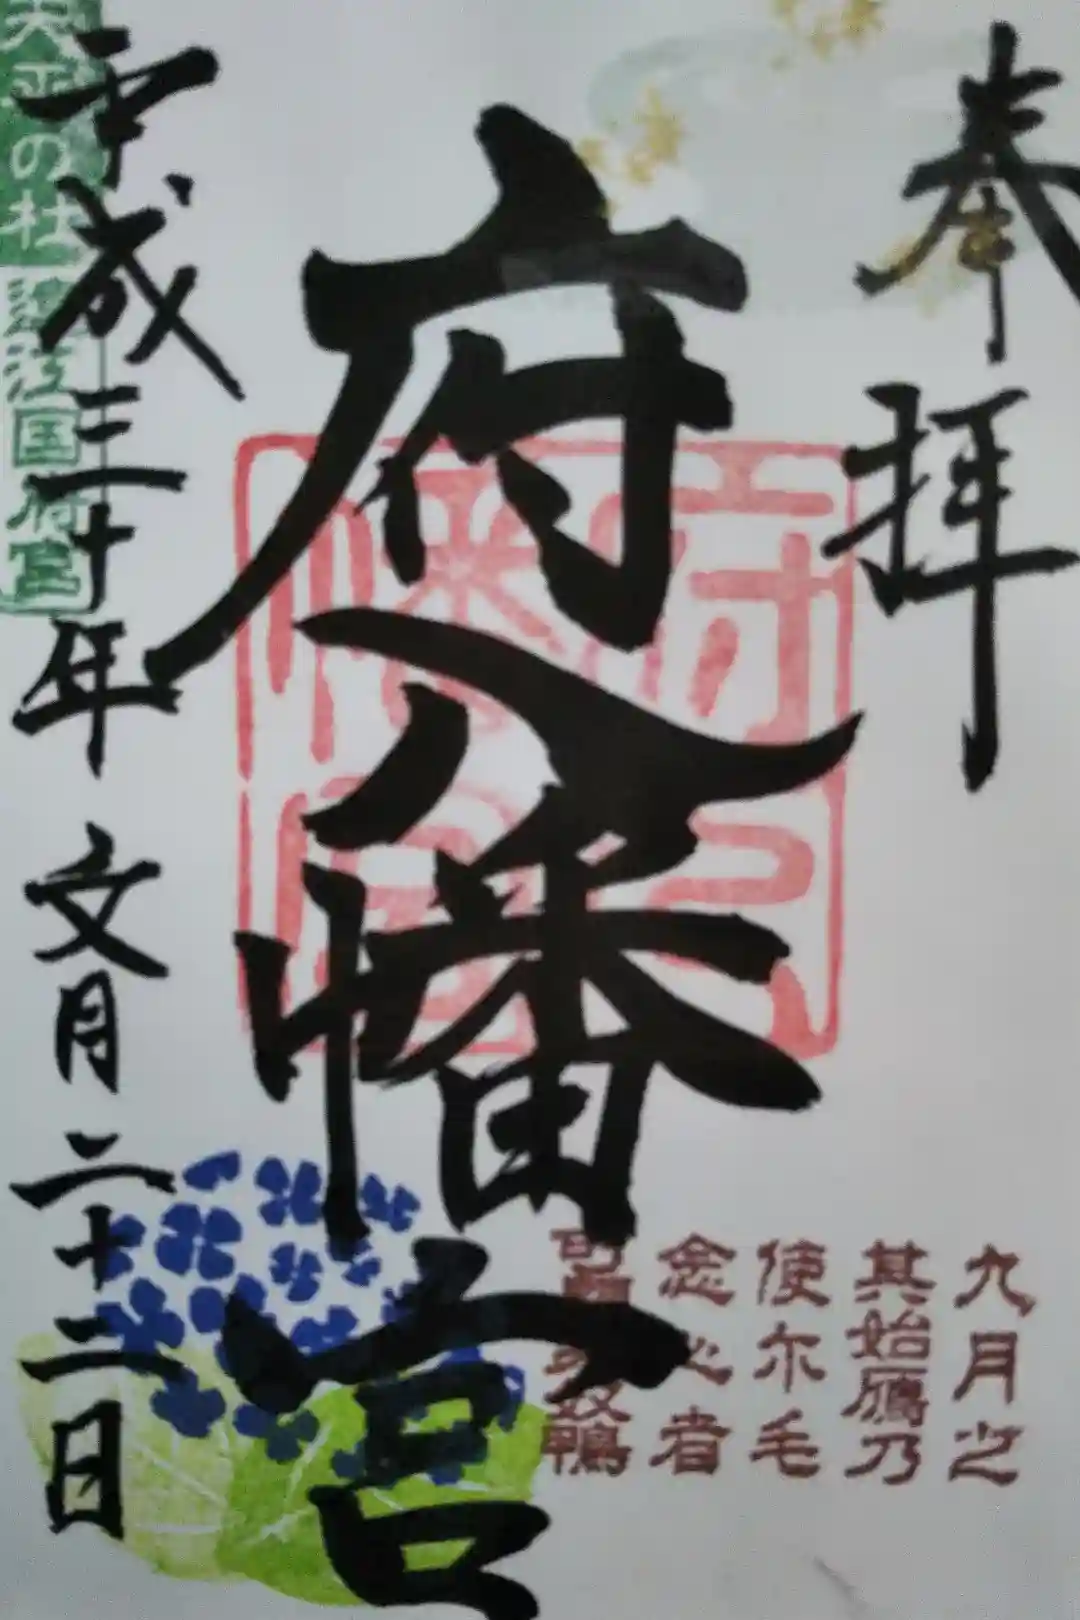 奉拝
府八幡宮
平成三十年文月二十二日
天平の杜 遠江国府宮
九月之
其始鴈乃
使尓毛
念心者
鴨